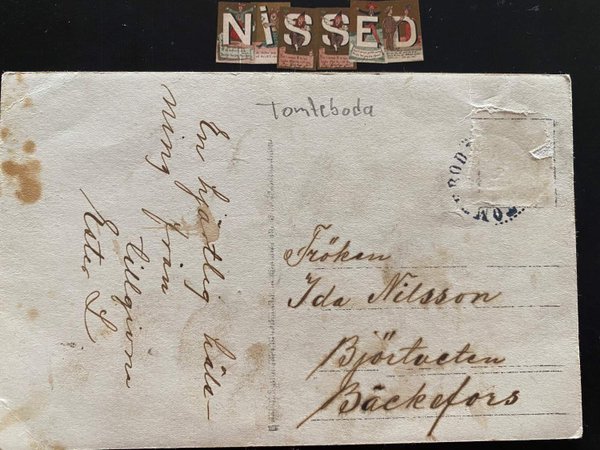 NISSED
Tomteboda
En hjärtlig häls-
ning från
tillgivna
Ester L
Fröken
Ida Nilsson
Björtveten
Bäckefors